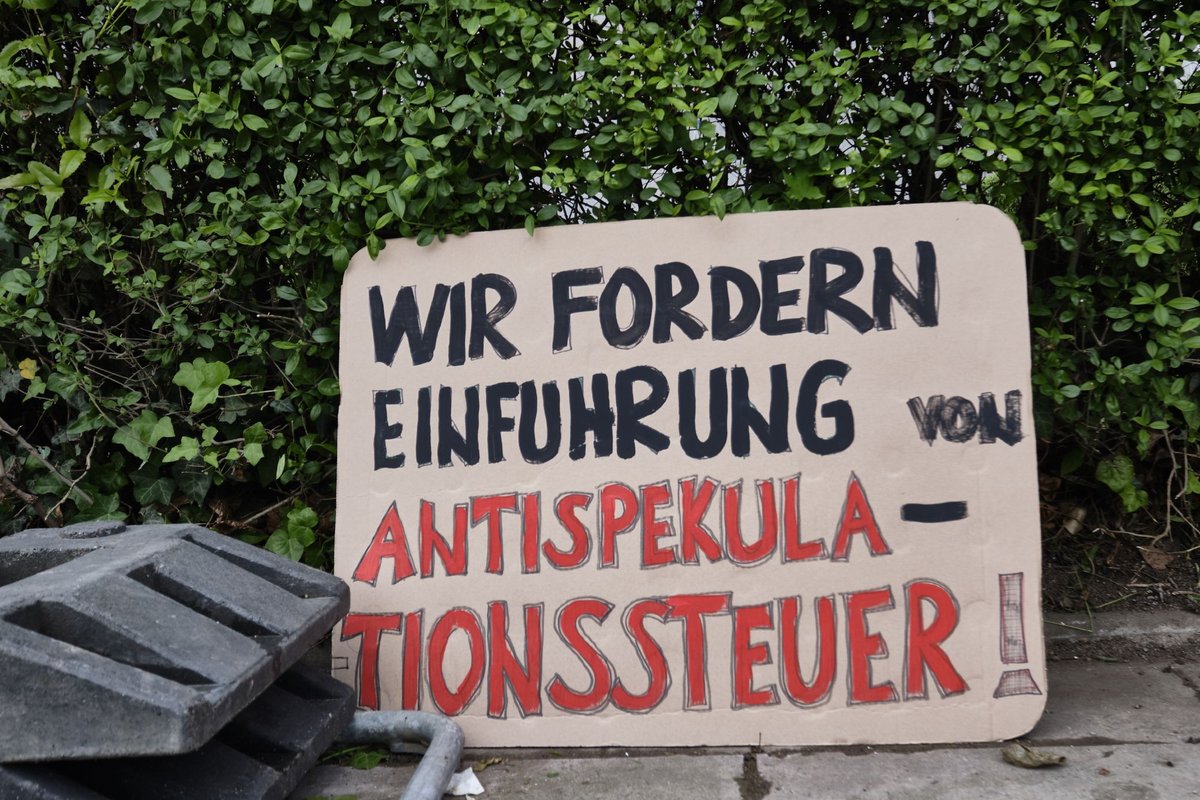 WIR FORDERN
EINFUHRUNG VON
ANTISPEKULA-
TIONSSTEUER!